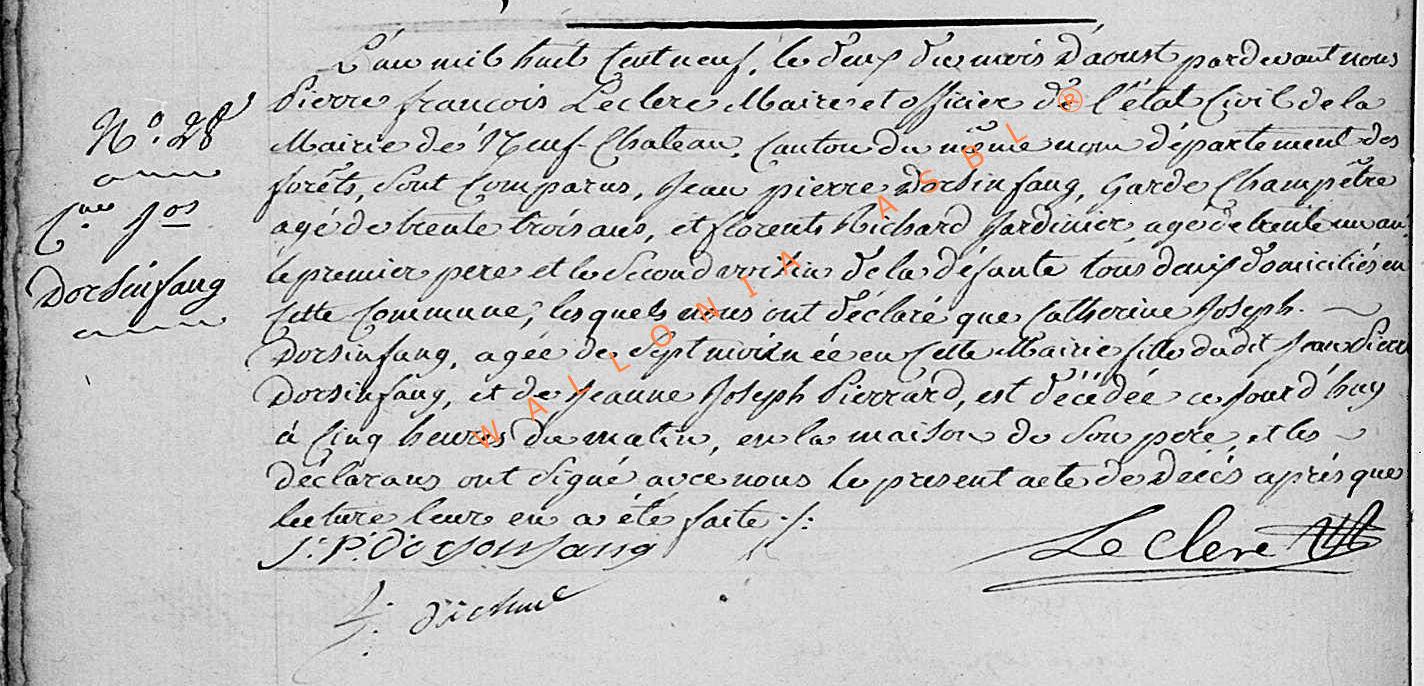 L'an mil huit Cent neuf, le deux du mois d'aoust pardevant nous
Pierre françois Leclere Maire et officier de l'état Civil de la
Mairie de Neuf-Chateau, Canton du même nom département des
forêts, Sont Comparus, Jean pierre Dorsinfang, Garde Champêtre
agé de trente trois ans, et florent Richard Jardinier, agé de trente un an,
le premier pere et le Second voisin de la défunte tous deux domiciliés en
Cette Commune, lesquels nous ont déclaré que Catherine Joseph.
Dorsinfang, agée de Sept mois née en Cette Mairie fille dudit Jean Pierre
Dorsinfang, et de Jeanne Joseph Pierrard, est décédée ce jourd'huy
à Cinq heures du matin, en la maison de Son pere, et les
déclarans ont Signé avec nous le present acte de Décès aprés que
lecture leur en a été faite ./:
N.º 28
C.ne Jos
Dorsinfang
J: P: Dorsonfang
Leclere
f:
WALLONIA ASBL ®